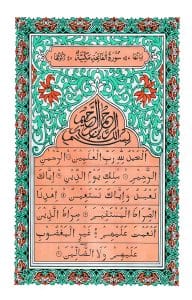 سُورَةُ الْفَاتِحَةِ مَكِّيَّةٌ
بِسْمِ اللهِ الرَّحْمٰنِ الرَّحِيْمِ
اَلْحَمْدُ لِلّٰهِ رَبِّ الْعٰلَمِيْنَ ۝ الرَّحْمٰنِ
الرَّحِيْمِ ۝ مٰلِكِ يَوْمِ الدِّيْنِ ۝ اِيَّاكَ
نَعْبُدُ وَاِيَّاكَ نَسْتَعِيْنُ ۝ اِهْدِنَا
الصِّرَاطَ الْمُسْتَقِيْمَ ۝ صِرَاطَ الَّذِيْنَ
اَنْعَمْتَ عَلَيْهِمْ ۝ غَيْرِ الْمَغْضُوْبِ
عَلَيْهِمْ وَلَا الضَّآلِّيْنَ ۝